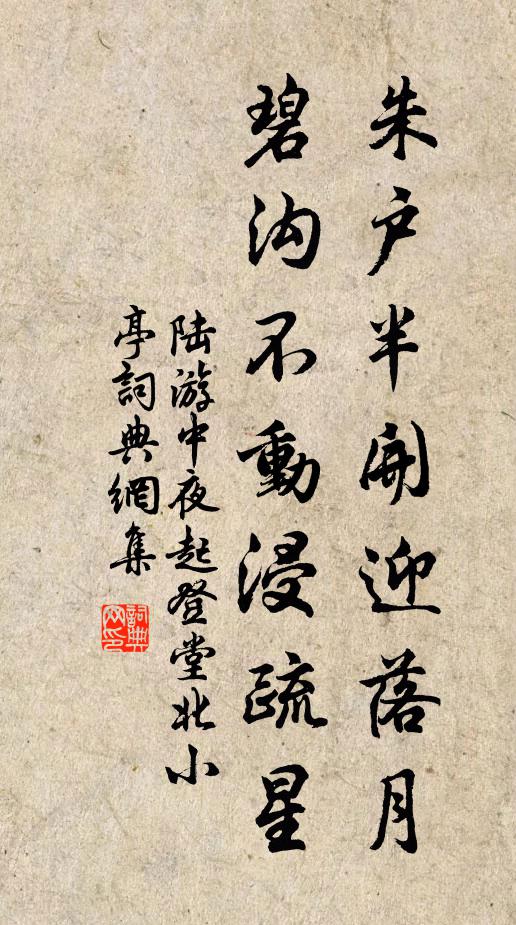 朱户半開迎落月
碧沟不動浸疏星
陆游中夜起登堂北小
亭詞典網集
詞典
网印